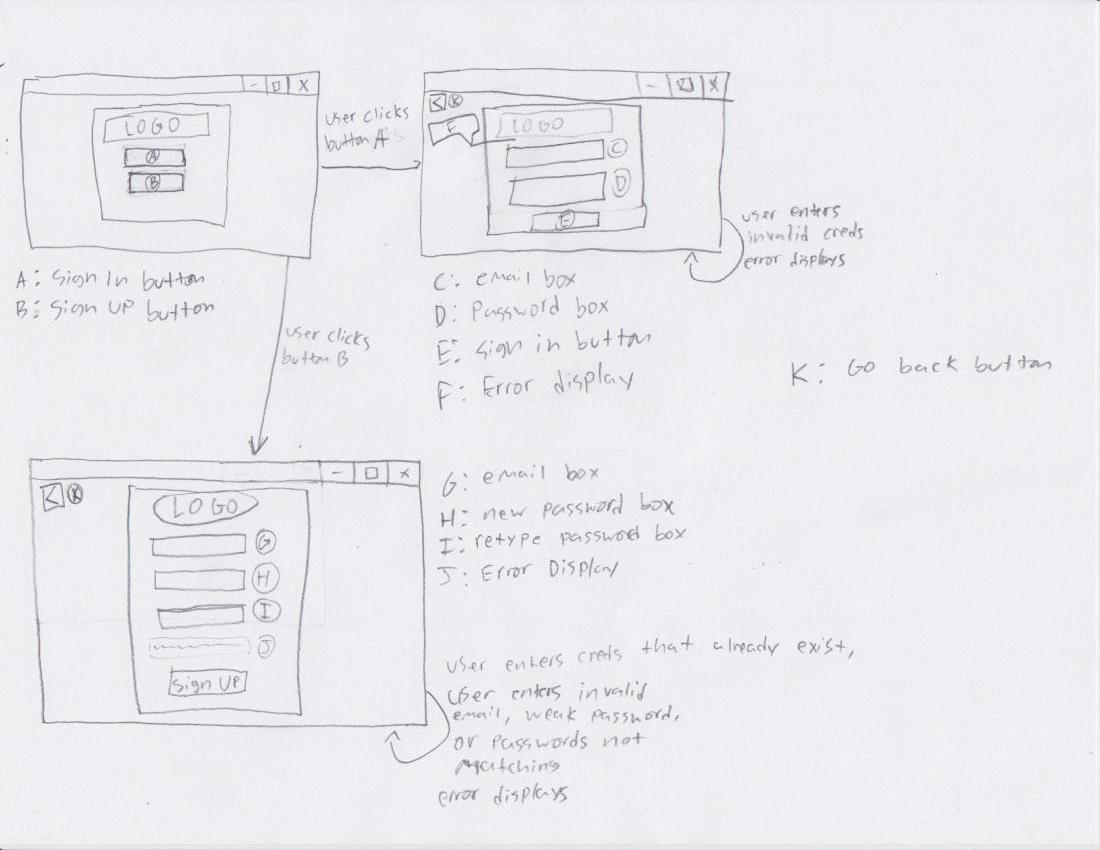 - □ X
LOGO
A
B
A: Sign In button
B: Sign UP button
user clicks
button A
- X
< K
F
LOGO
C
D
E
user enters
invalid creds
error displays
C: email box
D: Password box
E: Sign in button
F: Error display
K: Go back button
user clicks
button B
- □ X
< K
LOGO
G
H
I
J
Sign UP
G: email box
H: new password box
I: retype password box
J: Error Display
user enters creds that already exist,
user enters invalid
email, weak password,
or passwords not
matching
error displays